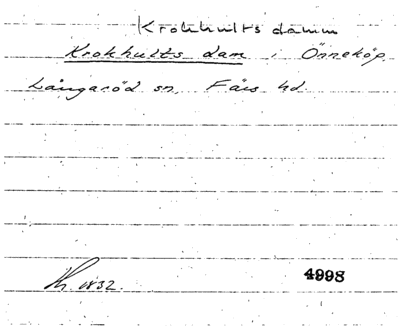 Krokhults damm
Krokhults dam i Önneköp.
Långaröd sn. Färs hd.
1832. 4998